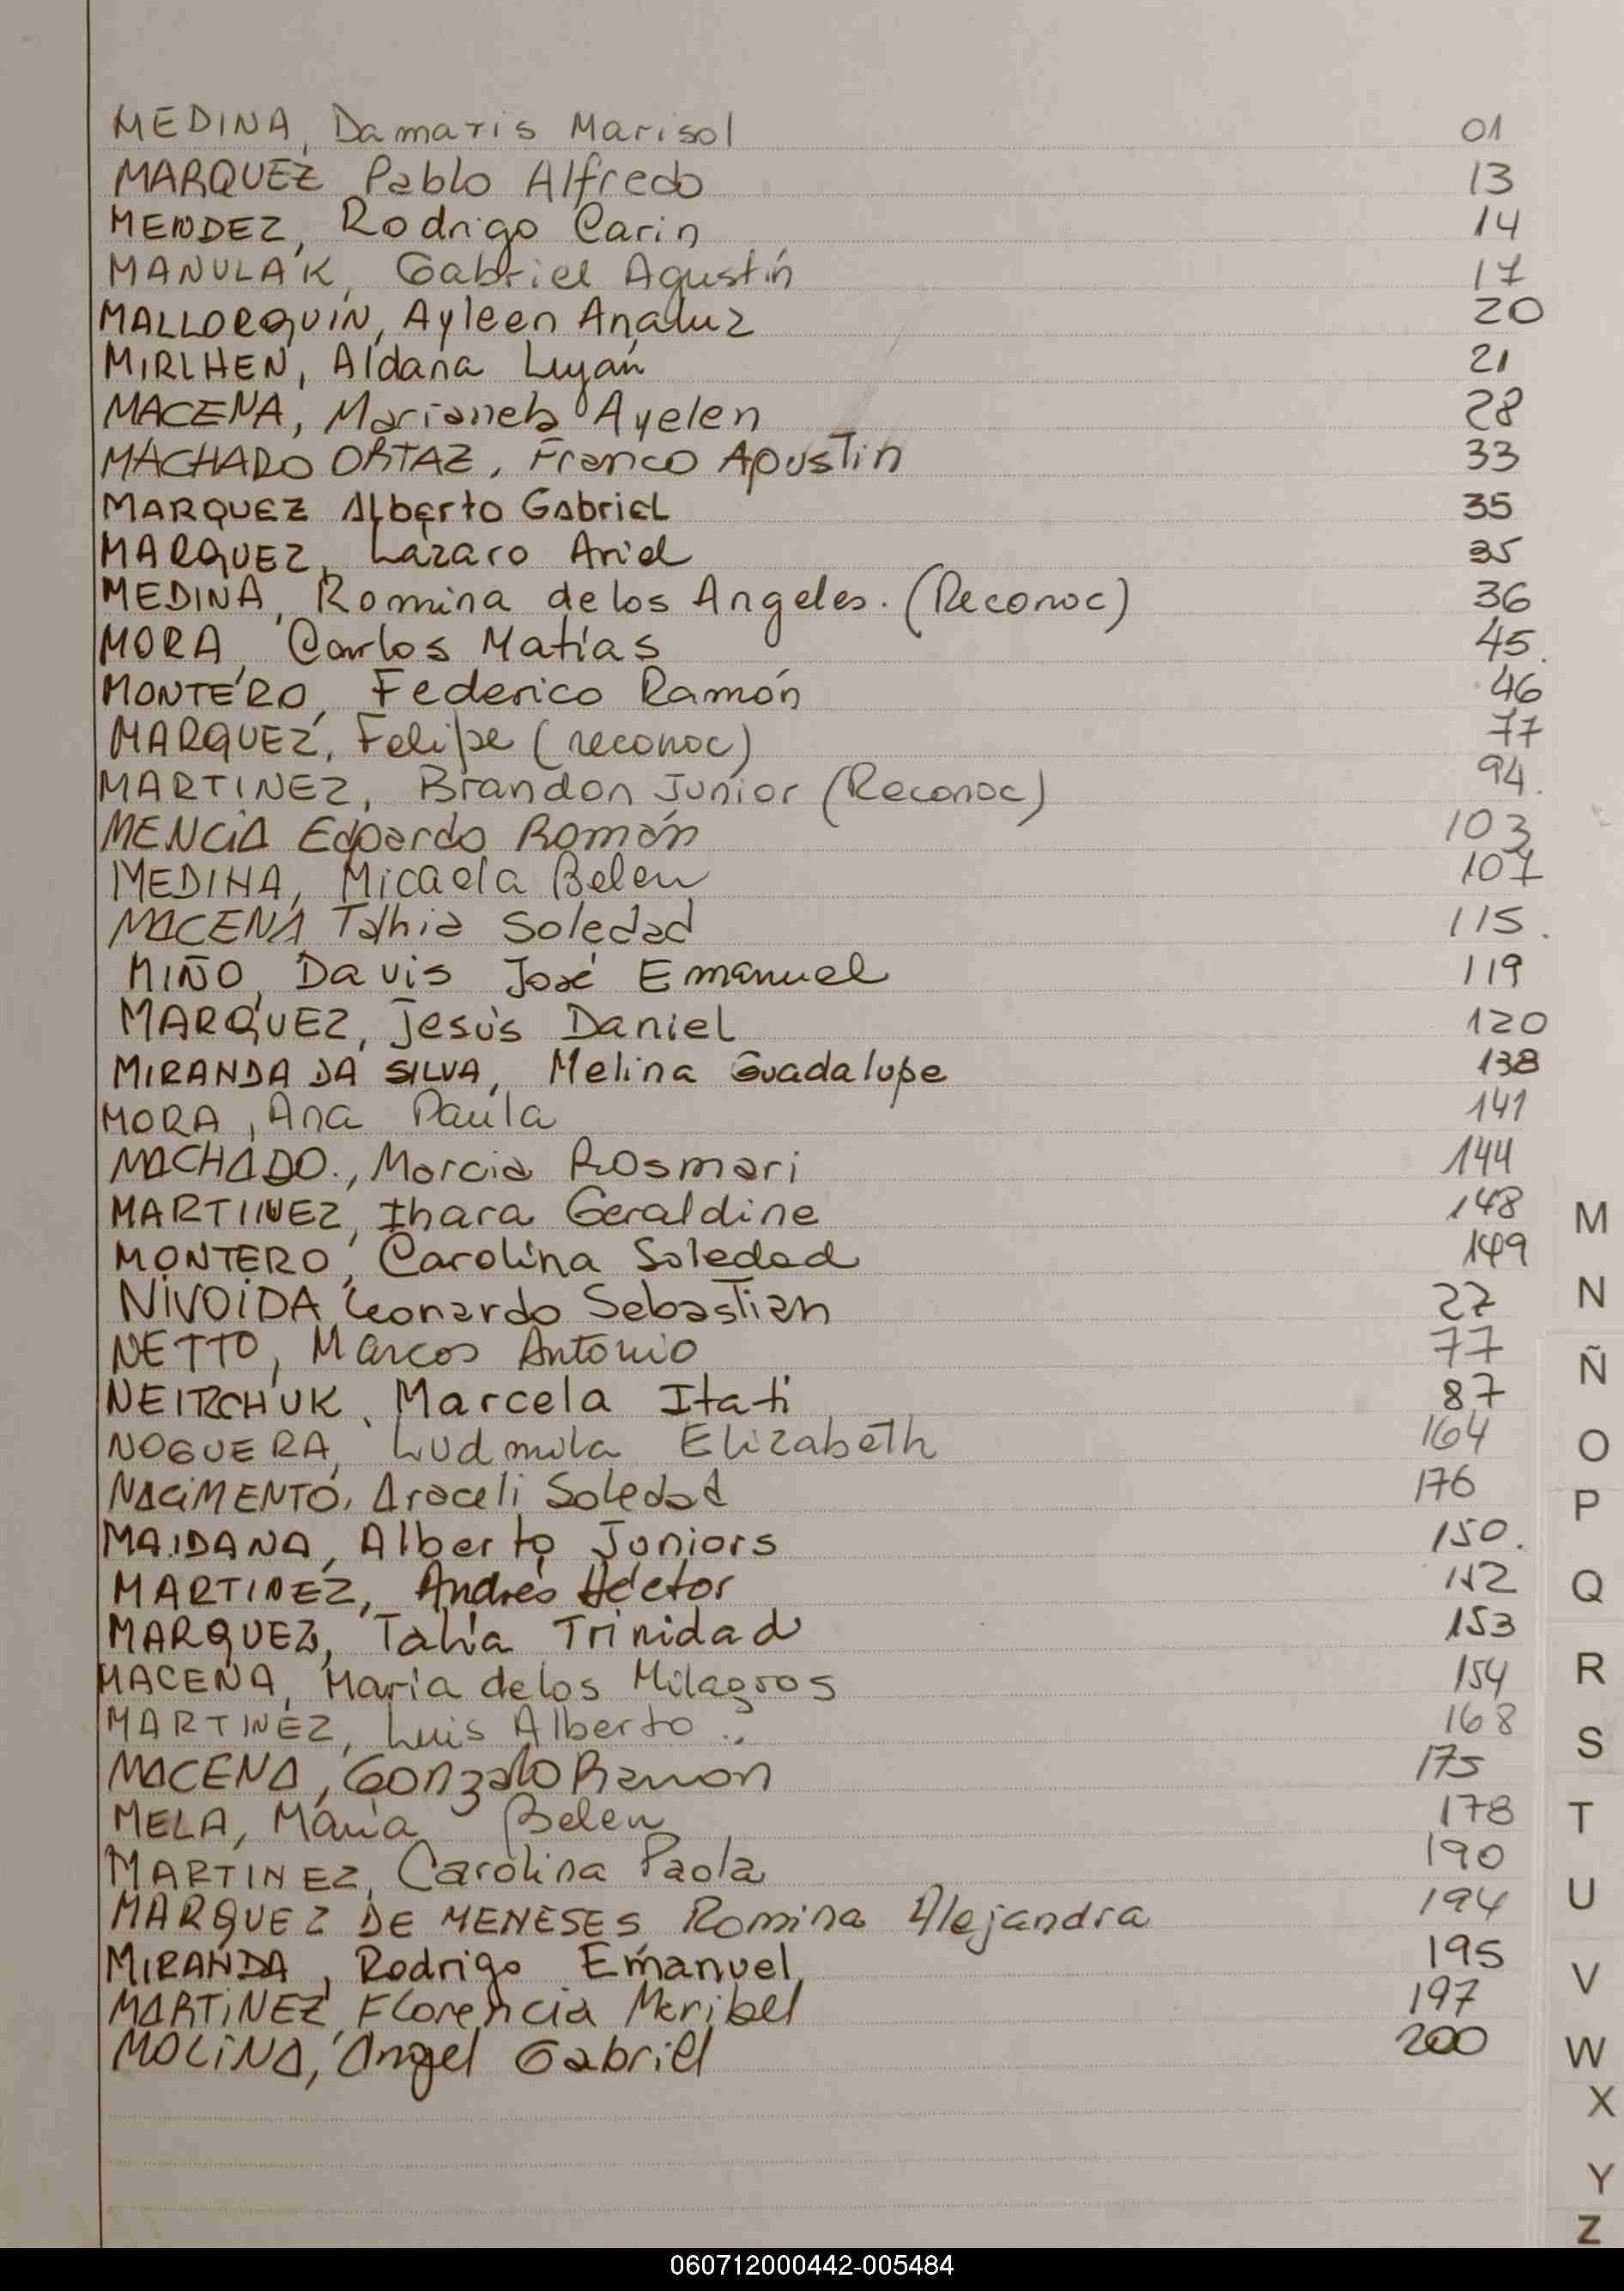 MEDINA, Damaris Marisol 01
MARQUEZ Pablo Alfredo 13
MENDEZ, Rodrigo Carin 14
MANULAK, Gabriel Agustín 17
MALLORQUIN, Ayleen Analuz 20
MIRLHEN, Aldana Luján 21
MACENA, Marianela Ayelen 28
MACHADO ORTAZ, Franco Agustin 33
MARQUEZ Alberto Gabriel 35
MARQUEZ, Lázaro Ariel 35
MEDINA, Romina de los Angeles. (Reconoc) 36
MORA, Carlos Matías 45.
MONTERO, Federico Ramón 46
MARQUEZ, Felipe (reconoc) 77
MARTINEZ, Brandon Junior (Reconoc) 94.
MENCIA Edgardo Román 103
MEDINA, Micaela Belen 107
MACENA Tahia Soledad 115.
MIÑO, Davis José Emanuel 119
MARQUEZ, Jesús Daniel 120
MIRANDA DA SILVA, Melina Guadalupe 138
MORA, Ana Paula 141
MACHADO., Marcia Rosmari 144
MARTINEZ, Ihara Geraldine 148
MONTERO, Carolina Soledad 149
NIVOIDA, Leonardo Sebastian 27
NETTO, Marcos Antonio 77
NEITZCHUK, Marcela Itati 87
NOGUERA, Ludmila Elizabeth 164
NACIMENTO, Araceli Soledad 176
MAIDANA, Alberto Juniors 150.
MARTINEZ, Andrés Héctor 152
MARQUEZ, Tahía Trinidad 153
MACENA, María de los Milagros 154
MARTINEZ, Luis Alberto 168
MACENA, Gonzalo Ramon 175
MELA, María Belen 178
MARTINEZ, Carolina Paola 190
MARQUEZ DE MENESES, Romina Alejandra 194
MIRANDA, Rodrigo Emanuel 195
MARTINEZ, Florencia Maribel 197
MOLINA, Angel Gabriel 200
M
N
Ñ
O
P
Q
R
S
T
U
V
W
X
Y
Z
060712000442-005484